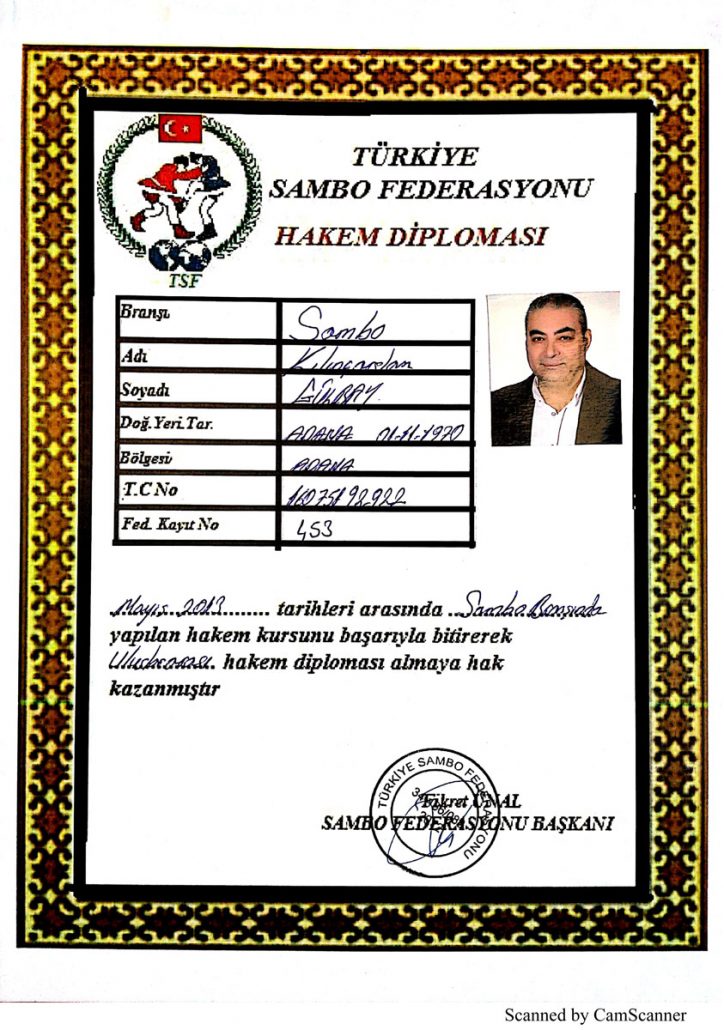 TÜRKİYE
SAMBO FEDERASYONU
HAKEM DİPLOMASI
TSF
Branşı Sambo
Adı Kılıçarslan
Soyadı GÜLBAY
Doğ.Yeri.Tar. ADANA 01-11-1970
Bölgesi ADANA
T.C No
Fed. Kayıt No 453
Mayıs 2013 tarihleri arasında Sambo Branşında
yapılan hakem kursunu başarıyla bitirerek
Uluslararası. hakem diploması almaya hak
kazanmıştır
TÜRKİYE SAMBO FEDERASYONU
Fikret ÜNAL
SAMBO FEDERASYONU BAŞKANI
Scanned by CamScanner